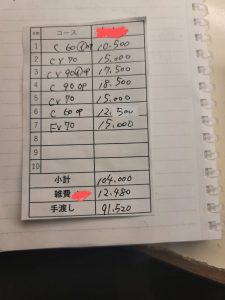 コース
1 C 60 ④ op 10.500
2 CV 70 15.000
3 CV 90 ④ op 17.500
4 C 90 op 18.500
5 CV 70 15.000
6 C 60 op 12.500
7 EV 70 15.000
8
9
10
小計 104.000
雑費 12.480
手渡し 91.520